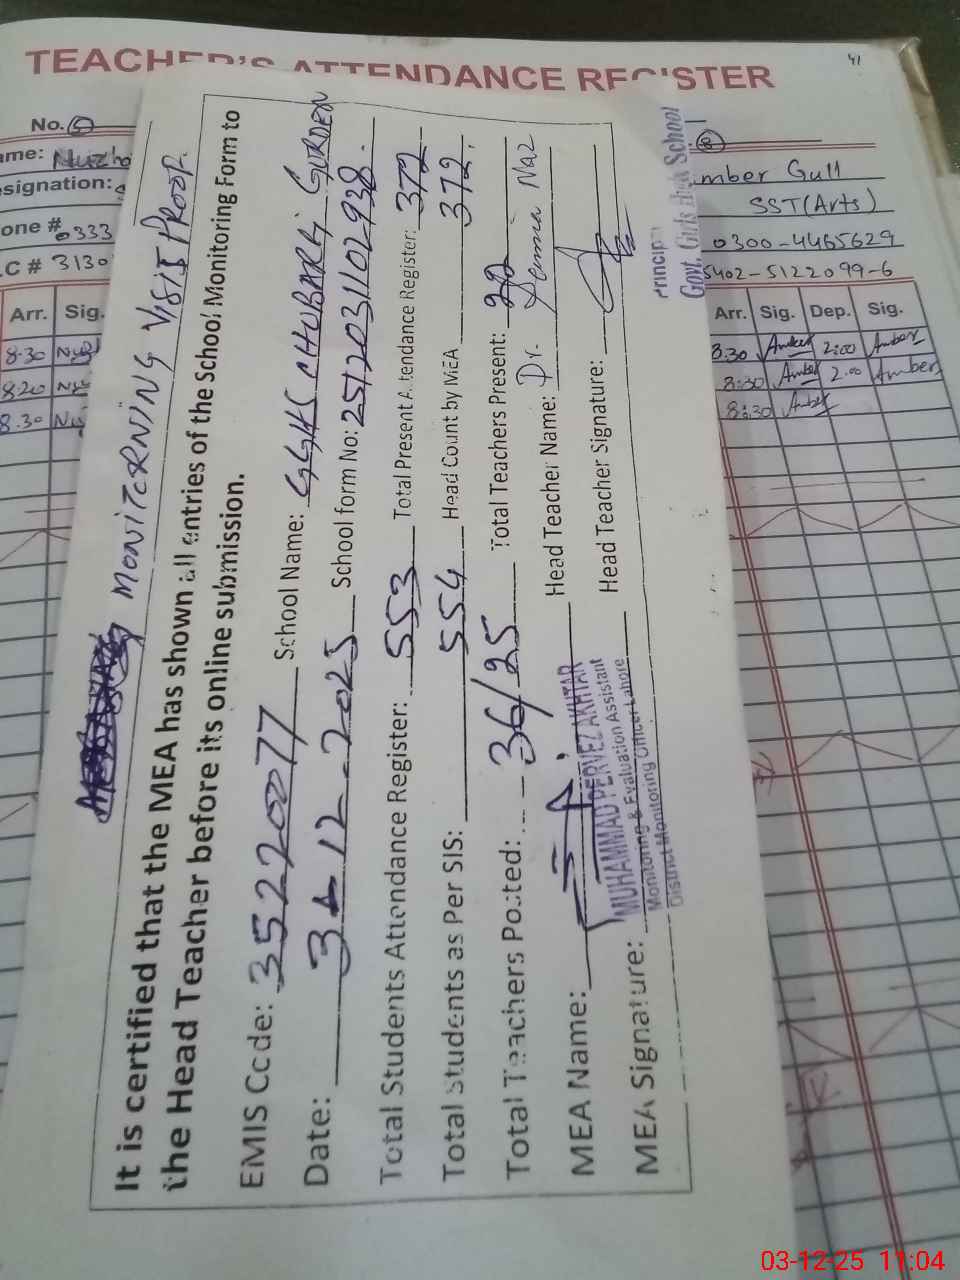 TEACHER'S ATTENDANCE REGISTER
41
No. 5
ame: Nuzh
signation:
one # 0333
.C # 3130
Arr. Sig.
8.30
8.20
8.30
8
mber Gull
SST(Arts)
0300-4465629
5402-5122099-6
Arr. Sig. Dep. Sig.
8.30 Amber 2:00 Amber
8:30 Amber 2.00 Amber
8:30 Amber
MONITERNING VISIT PROOF.
It is certified that the MEA has shown all entries of the School Monitoring Form to
the Head Teacher before its online submission.
EMIS Code: 35220077 School Name: GGHS CHUBARGI GURDEN
Date: 3-12-2025 School form No: 2512031102938.
Total Students Attendance Register: 553 Total Present Attendance Register: 372
Total Students as Per SIS: 554 Head Count by MEA 372.
Total Teachers Posted: 36/25 Total Teachers Present: 22
MEA Name: Head Teacher Name: Dr. Naz
MEA Signature: Head Teacher Signature:
MUHAMMAD PERVEZ AKHTAR
Monitoring & Evaluation Assistant
District Monitoring Officer Lahore
Principal
Govt. Girls High School
03-12-25 11:04